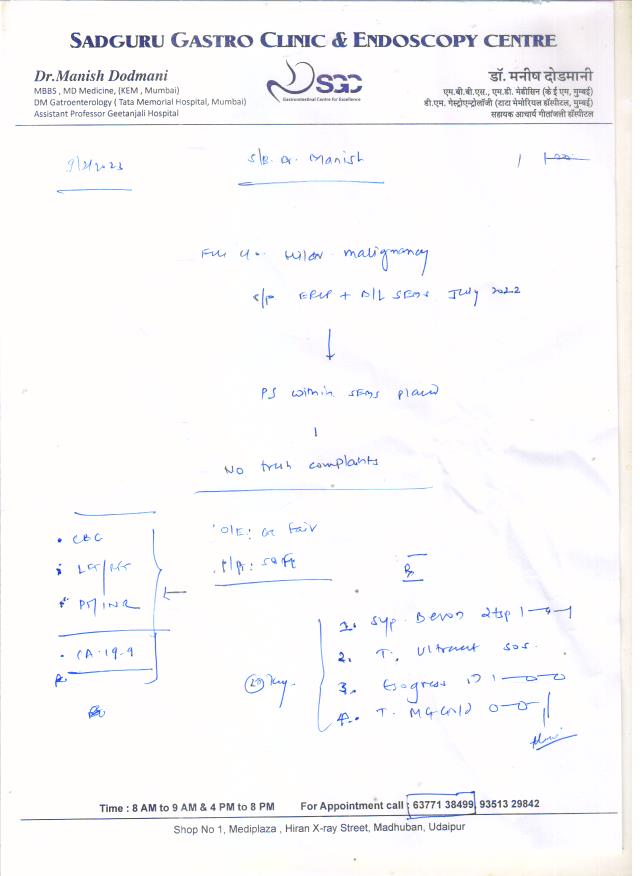 SADGURU GASTRO CLINIC & ENDOSCOPY CENTRE
Dr.Manish Dodmani
MBBS , MD Medicine, (KEM , Mumbai)
DM Gatroenterology ( Tata Memorial Hospital, Mumbai)
Assistant Professor Geetanjali Hospital
SGC
Gastrointestinal Centre for Excellence
डॉ. मनीष दोडमानी
एम.बी.बी.एस., एम.डी. मेडीसिन (के ई एम, मुम्बई)
डी.एम. गेस्ट्रोएन्ट्रोलॉजी (टाटा मेमोरियल हॉस्पीटल, मुम्बई)
सहायक आचार्य गीतांजली हॉस्पीटल
S/B. Dr. Manish
malignancy
S/P ERCP + B/L SEMS July 2022
PS within SEMS placed
No fresh complants
• CBC
• LFT/RFT
• PT/INR
• CA-19-9
O/E: GC Fair
P/A: Soft
Rx
1. Syp. Bevon 2tsp 1-0-1
2. T. Ultracet SOS.
3. 1-0-0
4. T. 0-0-1
Time : 8 AM to 9 AM & 4 PM to 8 PM For Appointment call : 63771 38499, 93513 29842
Shop No 1, Mediplaza , Hiran X-ray Street, Madhuban, Udaipur